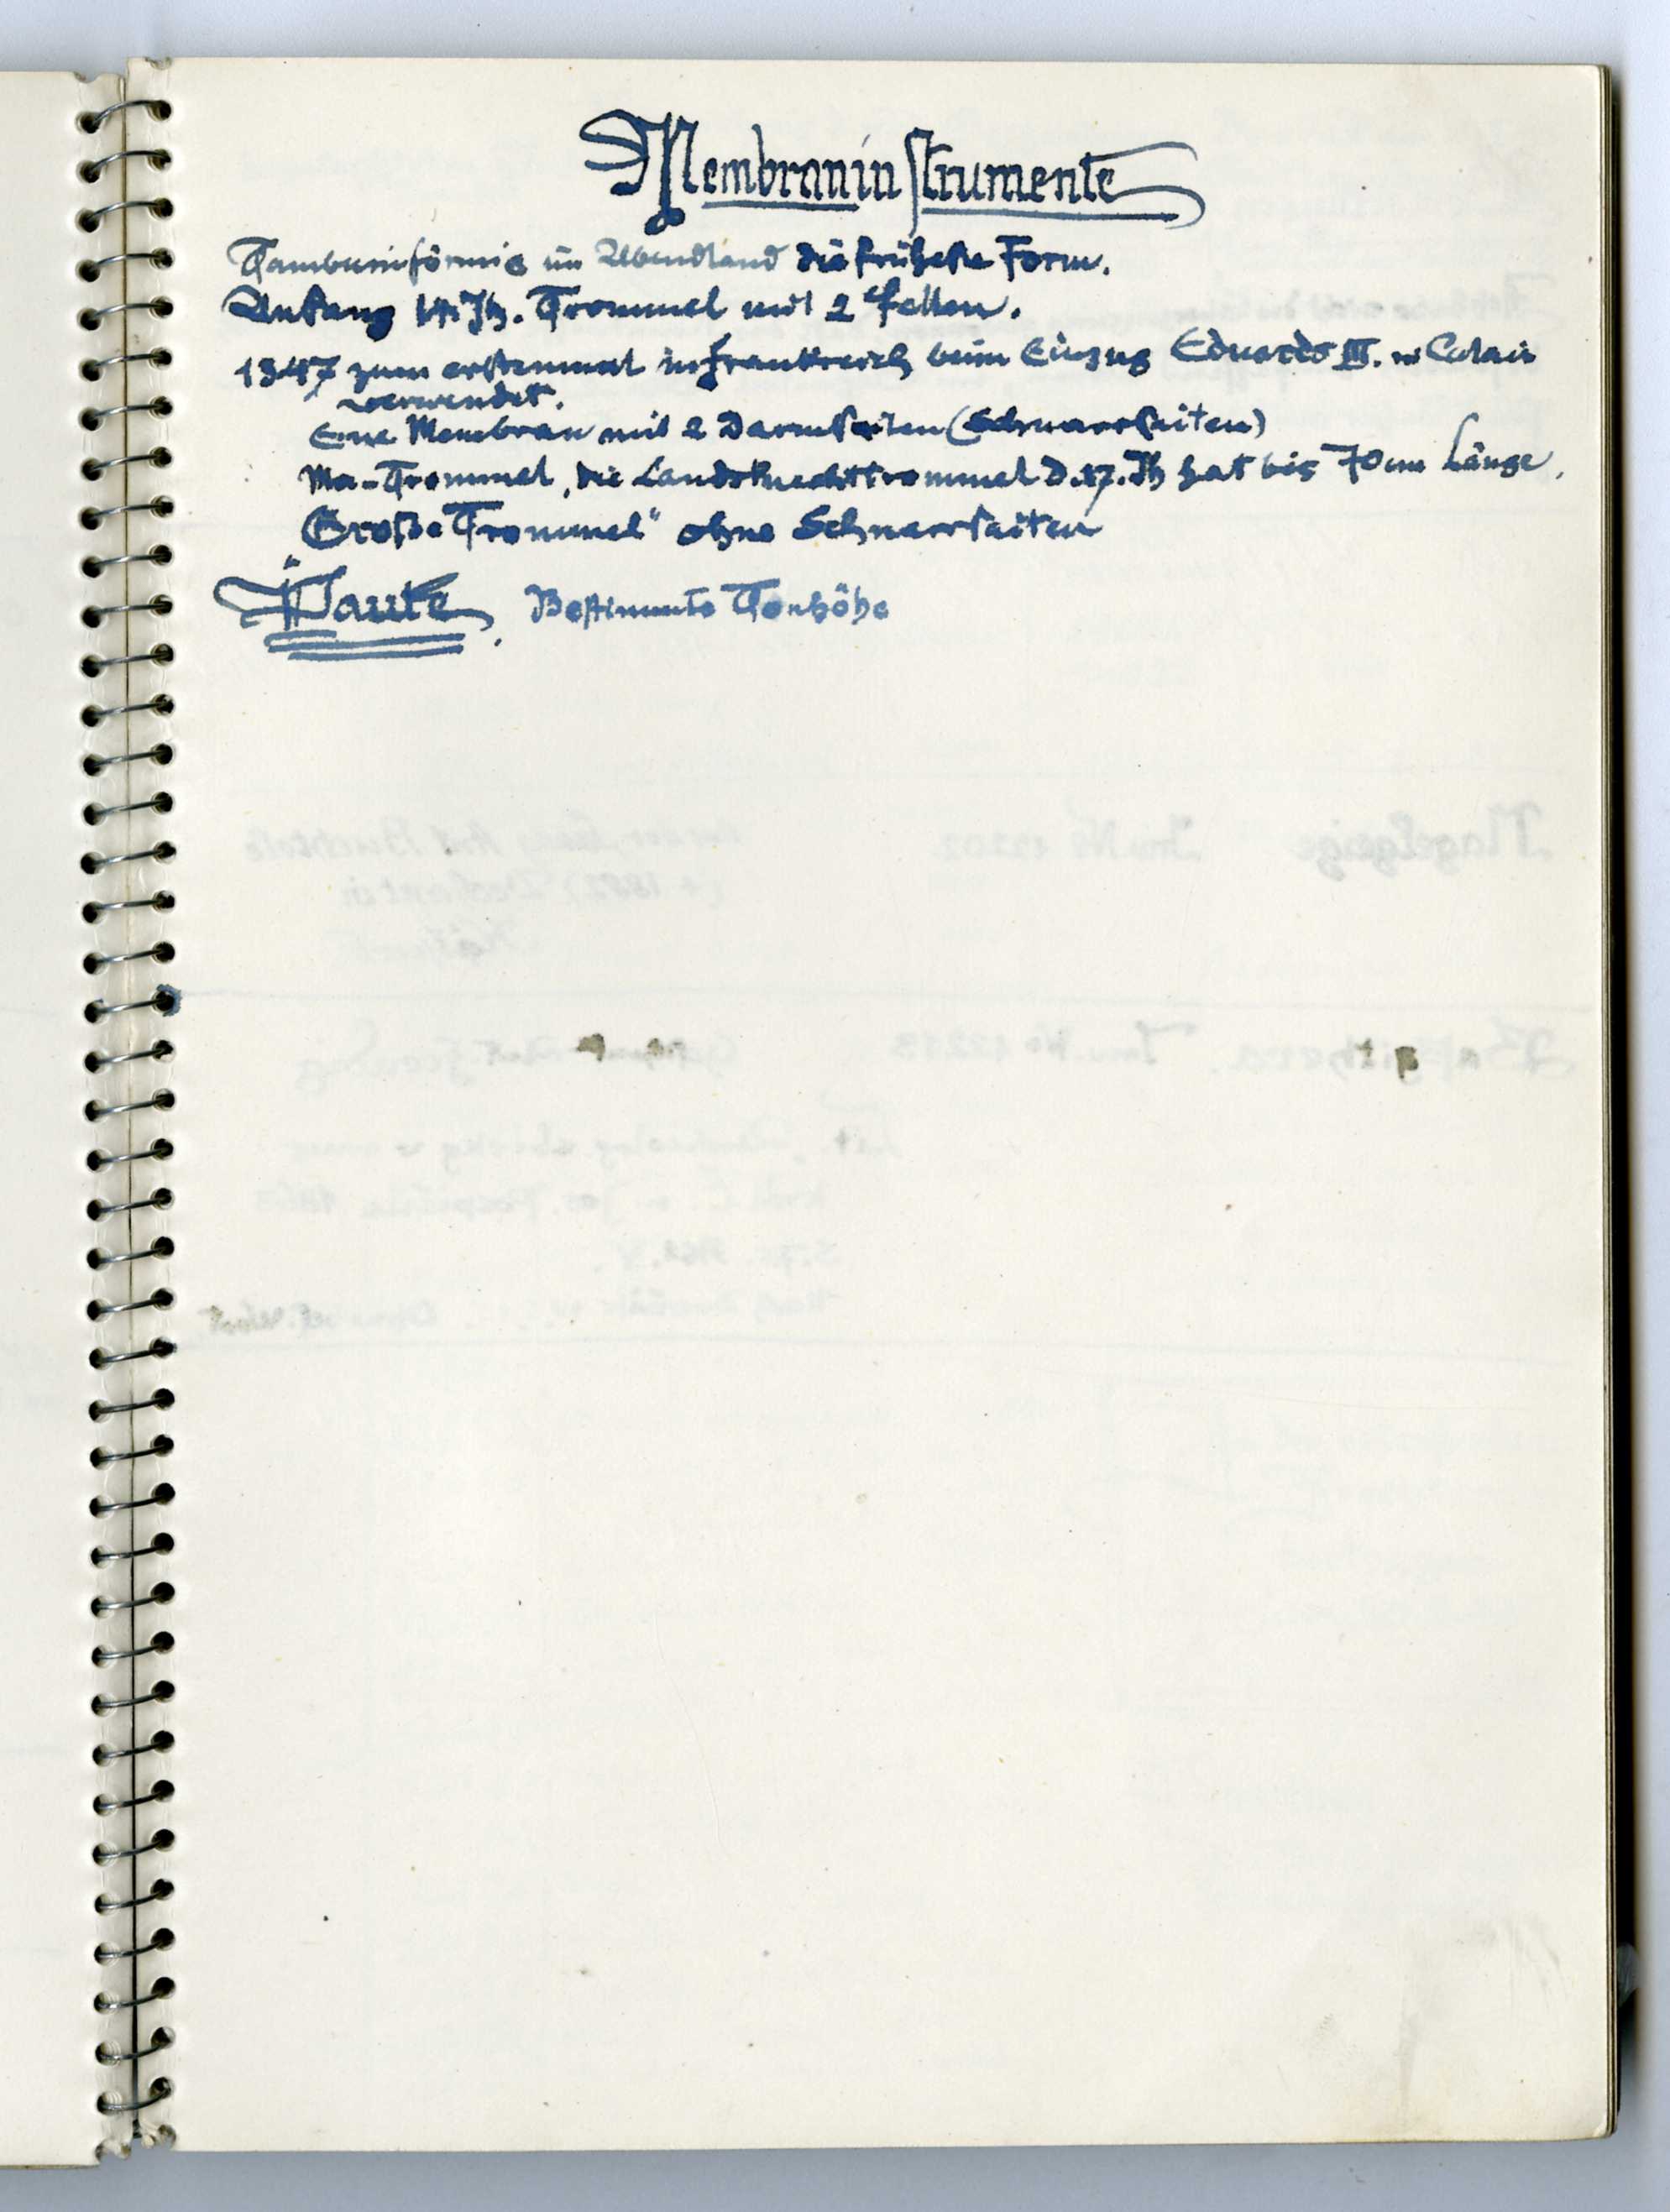 Membraninstrumente
Tamburinförmig im Abendland die früheste Form.
Anfang 14. Jh. Trommel mit 2 Fellen.
1347 zum erstenmal in Frankreich beim Einzug Eduards III. in Calais
verwendet.
Eine Membran mit 2 Darmsaiten (Schnarrsaiten)
Ma-Trommel, die Landsknechttrommel d. 17. Jh hat bis 70 cm Länge.
"Große Trommel" ohne Schnarrsaiten
Pauke. Bestimmte Tonhöhe
Nagelgeige Inv. No 12202
(+ 1882) Dechant in
Inv. No 12213